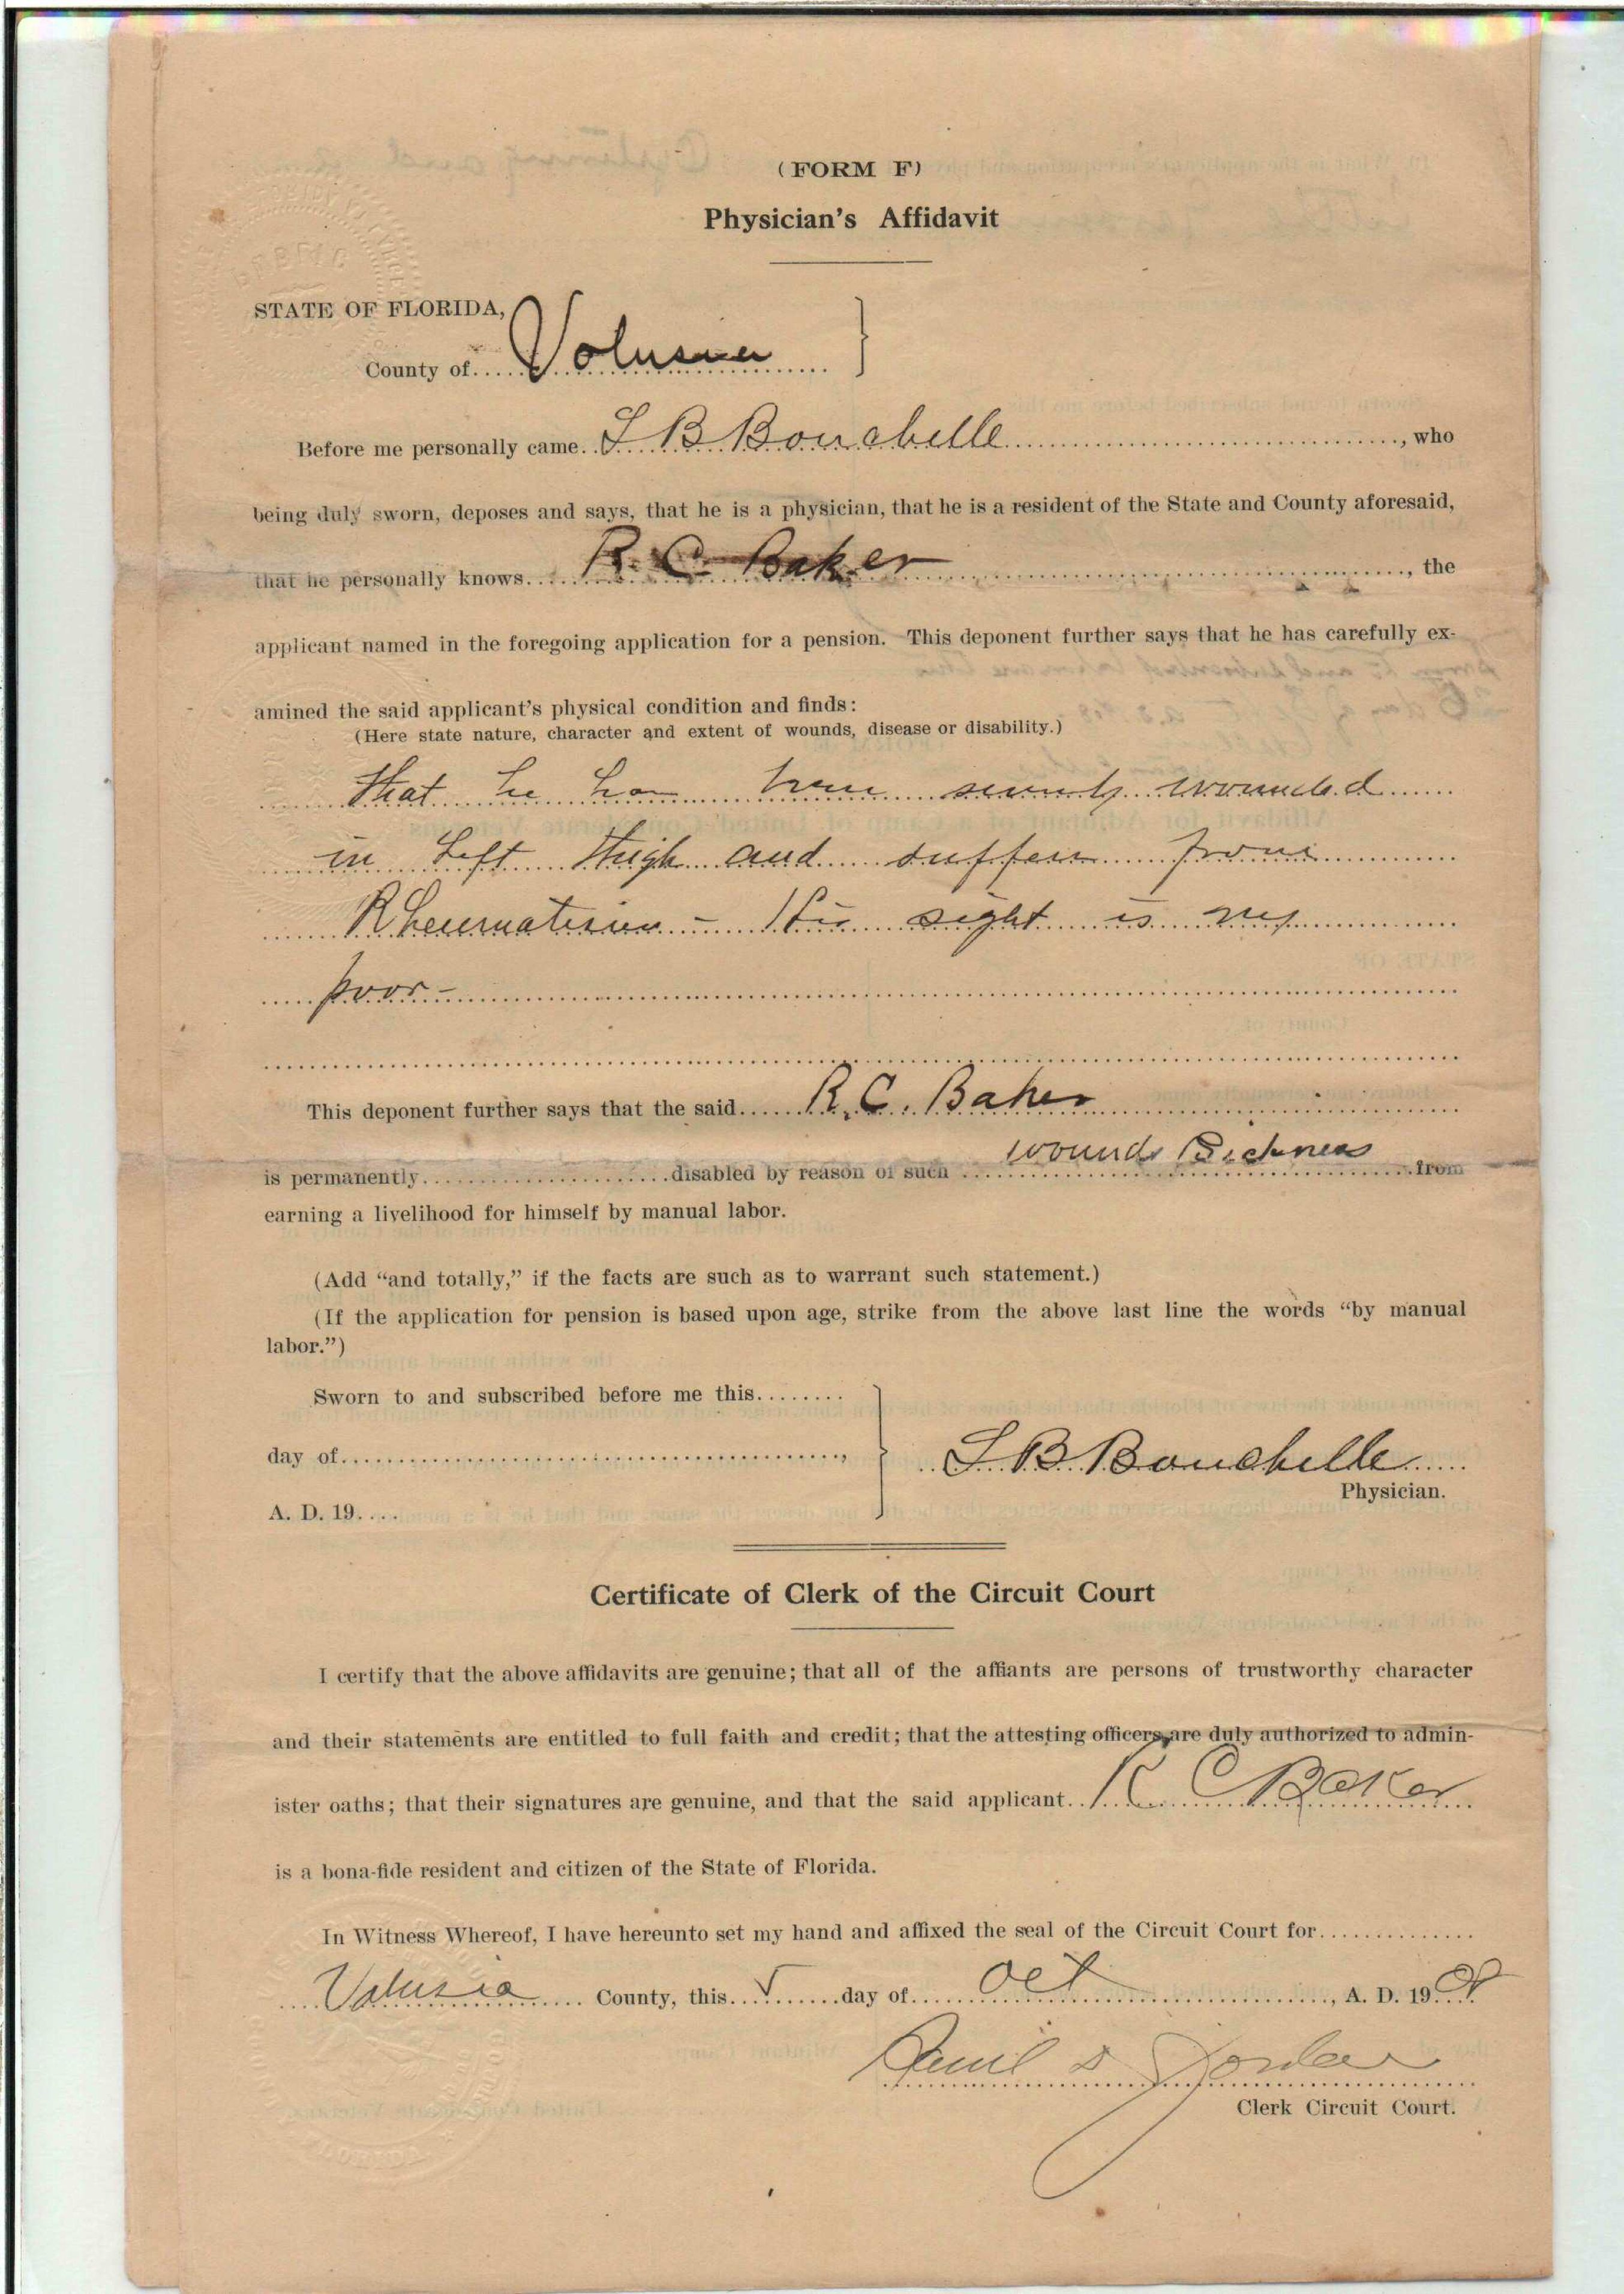 (FORM F)
Physician's Affidavit
STATE OF FLORIDA,
County of Volusia
Before me personally came L B Bouchelle, who
being duly sworn, deposes and says, that he is a physician, that he is a resident of the State and County aforesaid,
that he personally knows R. C. Baker, the
applicant named in the foregoing application for a pension. This deponent further says that he has carefully ex-
amined the said applicant's physical condition and finds:
(Here state nature, character and extent of wounds, disease or disability.)
that he has been wounded
in Left Thigh and suffers from
Rheumatism - His sight is very
poor -
This deponent further says that the said R. C. Baker
is permanently disabled by reason of such wounds Sickness from
earning a livelihood for himself by manual labor.
(Add "and totally," if the facts are such as to warrant such statement.)
(If the application for pension is based upon age, strike from the above last line the words "by manual
labor.")
Sworn to and subscribed before me this
day of
A. D. 19
L B Bouchelle
Physician.
Certificate of Clerk of the Circuit Court
I certify that the above affidavits are genuine; that all of the affiants are persons of trustworthy character
and their statements are entitled to full faith and credit; that the attesting officers are duly authorized to admin-
ister oaths; that their signatures are genuine, and that the said applicant R C Baker
is a bona-fide resident and citizen of the State of Florida.
In Witness Whereof, I have hereunto set my hand and affixed the seal of the Circuit Court for
Volusia County, this 5 day of Oct, A. D. 19
Saml D Jordan
Clerk Circuit Court.